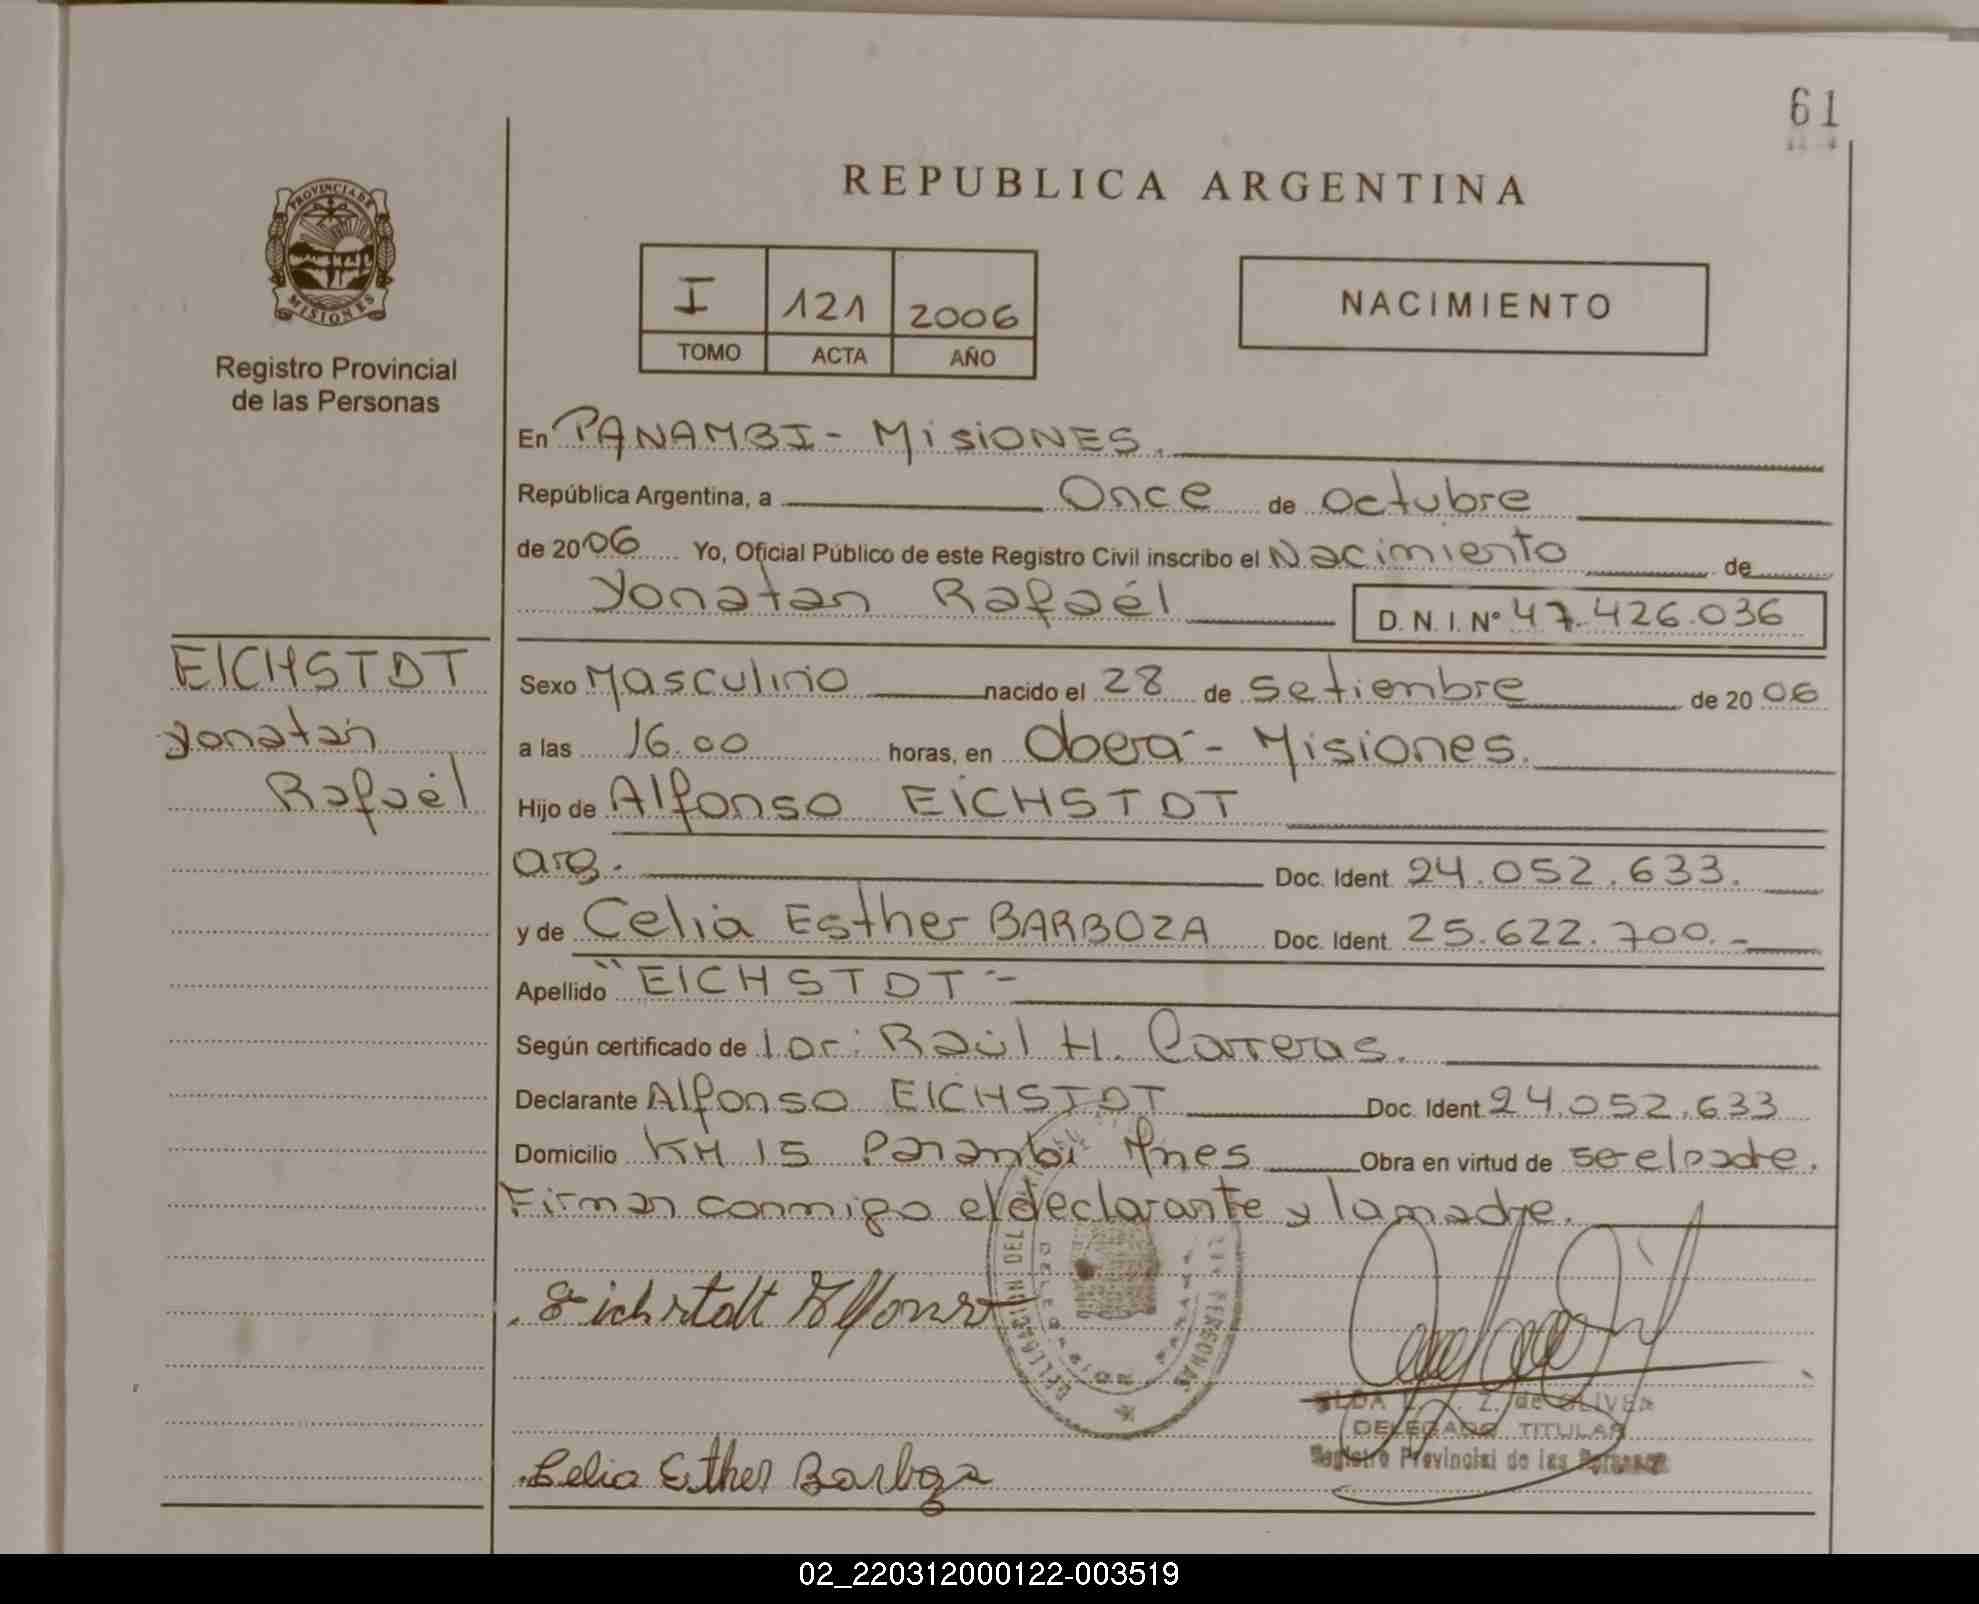 61
REPUBLICA ARGENTINA
PROVINCIA DE
MISIONES
Registro Provincial
de las Personas
I 121 2006
TOMO ACTA AÑO
NACIMIENTO
En PANAMBI - MisiONES.
República Argentina, a Once de Octubre
de 2006 Yo, Oficial Público de este Registro Civil inscribo el Nacimiento de
Yonatan Rafaél D. N. I. N° 47.426.036
EICHSTDT
Yonatan
Rafaél
Sexo Masculino nacido el 28 de Setiembre de 2006
a las 16.00 horas, en Oberá - Misiones.
Hijo de Alfonso EICHSTDT
arg. Doc. Ident. 24.052.633.
y de Celia Esther BARBOZA Doc. Ident. 25.622.700.-
Apellido "EICHSTDT"-
Según certificado de Dr: Raúl H. Carreras.
Declarante Alfonso EICHSTDT Doc. Ident. 24.052.633
Domicilio KM 15 Panambi Mnes Obra en virtud de se el padre.
Firman conmigo el declarante y la madre.
Eichstdt Alfonso
DELEGACION DEL
DE LAS PERSONAS
Z. de OLIVERA
DELEGADO TITULAR
Registro Provincial de las Personas
Celia Esther Barboza
02_220312000122-003519